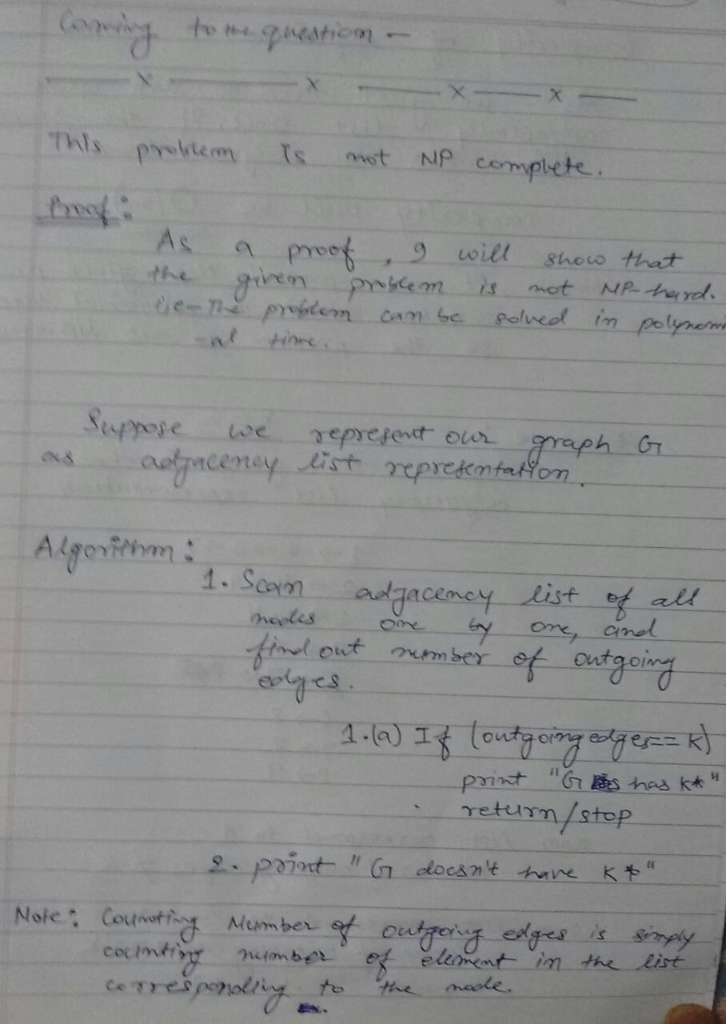 Coming to the question -
— x — x — x — x —
This problem is not NP complete.
Proof:
As a proof, I will show that
the given problem is not NP-hard.
i.e- The problem can be solved in polynomi
-al time.
Suppose we represent our graph G
as adjacency list representation.
Algorithm:
1. Scan adjacency list of all
nodes one by one, and
find out number of outgoing
edges.
1.(a) If (outgoing edges== K)
print "G has K*"
return/stop
2. print "G doesn't have K*"
Note: Counting Number of outgoing edges is simply
counting number of element in the list
corresponding to the node.